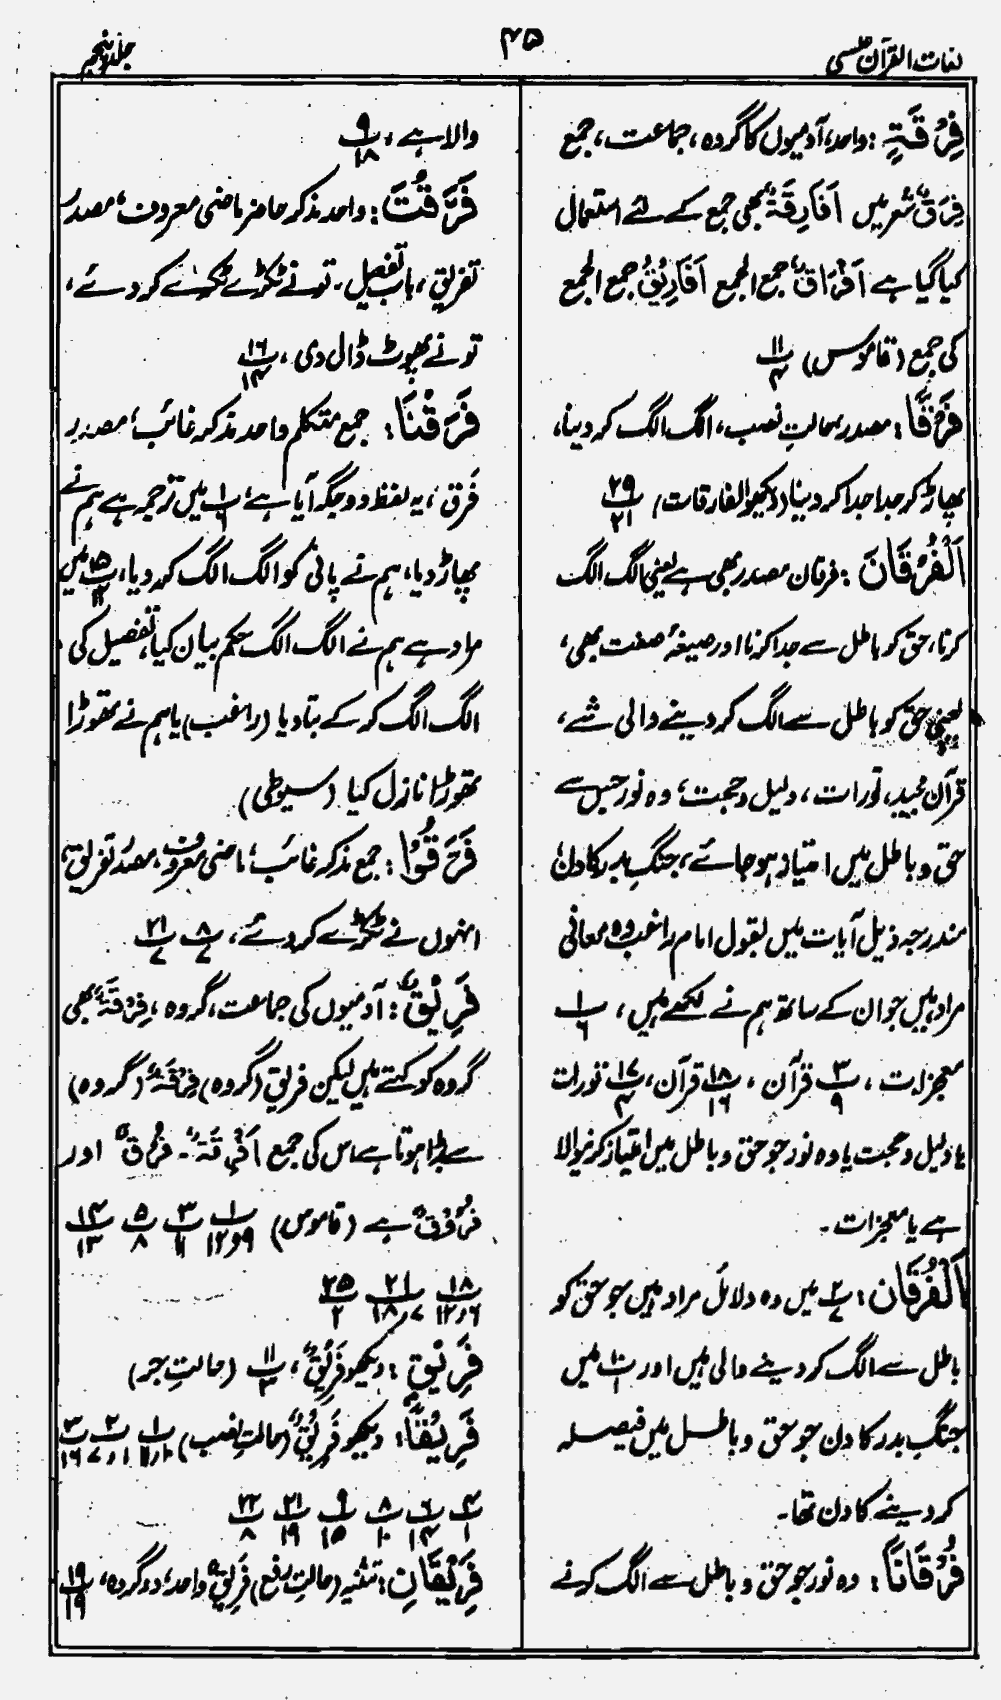 لغات القرآن عکسی
۴۵
جلد پنجم
فِرْقَۃٍ : واحد، آدمیوں کا گروہ، جماعت، جمع
فِرَقٌ شعر میں اَفَارِقَۃٌ بھی جمع کے لئے استعمال
کیا گیا ہے اَفْرَاقٌ جمع الجمع اَفَارِیْقُ جمع الجمع
کی جمع (قاموس) پ۱۱/۴
فَرْقًا : مصدر بحالتِ نصب، الگ الگ کر دینا،
پھاڑ کر جدا جدا کر دینا (دیکھو الفارقات) پ۲۹/۲۱
اَلْفُرْقَانَ : فرقان مصدر بھی ہے یعنی الگ الگ
کرنا، حق کو باطل سے جدا کرنا اور صیغۂ صفت بھی،
یعنی حق کو باطل سے الگ کر دینے والی شے،
قرآن مجید، تورات، دلیل و حجت، وہ نور جس سے
حق و باطل میں امتیاز ہو جائے، جنگِ بدر کا دن،
مندرجہ ذیل آیات میں بقول امام راغب وہ معانی
مراد ہیں جو ان کے ساتھ ہم نے لکھے ہیں، پ۱/۶
معجزات، پ۳/۹ قرآن، پ۱۸/۱۶ قرآن، پ۱۷/۴ تورات
یا دلیل و حجت یا وہ نور جو حق و باطل میں امتیاز کرنیوالا
ہے یا معجزات۔
اَلْفُرْقَانِ : پ۲/۷ میں وہ دلائل مراد ہیں جو حق کو
باطل سے الگ کر دینے والی ہیں اور پ۱۰/۱ میں
جنگِ بدر کا دن جو حق و باطل میں فیصلہ
کر دینے کا دن تھا۔
فُرْقَانًا : وہ نور جو حق و باطل سے الگ کرنے
والا ہے، پ۹/۱۸
فَرَّقْتَ : واحد مذکر حاضر ماضی معروف، مصدر
تفریق، باب تفعیل۔ تو نے ٹکڑے ٹکڑے کر دئے،
تو نے پھوٹ ڈال دی، پ۱۶/۱۴
فَرَقْنَا : جمع متکلم واحد مذکر غائب، مصدر
فَرق، یہ لفظ دو جگہ آیا ہے، پ۱/۶ میں ترجمہ ہے ہم نے
پھاڑ دیا، ہم نے پانی کو الگ الگ کر دیا، پ۱۵/۱۲ میں
مراد ہے ہم نے الگ الگ حکم بیان کیا، تفصیل کی
الگ الگ کر کے بتا دیا (راغب) یا ہم نے تھوڑا
تھوڑا نازل کیا (سیوطی)
فَرَّقُوْا : جمع مذکر غائب، ماضی معروف، مصدر تفریق،
انہوں نے ٹکڑے کر دئے، پ۸/۷ پ۲۱/۷
فَرِیْقٌ : آدمیوں کی جماعت، گروہ، فِرْقَۃٌ بھی
گروہ کو کہتے ہیں لیکن فریق (گروہ) فِرْقَۃٌ (گروہ)
سے بڑا ہوتا ہے اس کی جمع اَفْرِقَۃٌ۔ فُرُقٌ اور
فُرُوْقٌ ہے (قاموس) پ۱/۹و۱۲ پ۳/۱۱ پ۵/۸ پ۱۴/۱۳
پ۱۸/۶و۱۲ پ۲۱/۷و۱۸ پ۲۵/۲
فَرِیْقٍ : دیکھو فَرِیْقٌ، پ۱۱/۳ (حالتِ جر)
فَرِیْقًا : دیکھو فَرِیْقٌ (حالتِ نصب) پ۱/۱۰و۱۱ پ۲/۱و۷ پ۳/۱۶
پ۴/۱ پ۶/۱۴ پ۸/۱۰ پ۹/۱۵ پ۲۱/۱۹ پ۲۲/۸
فَرِیْقَانِ : تثنیہ (حالتِ رفع) فَرِیْقٌ واحد، دو گروہ، پ۱۹/۱۹